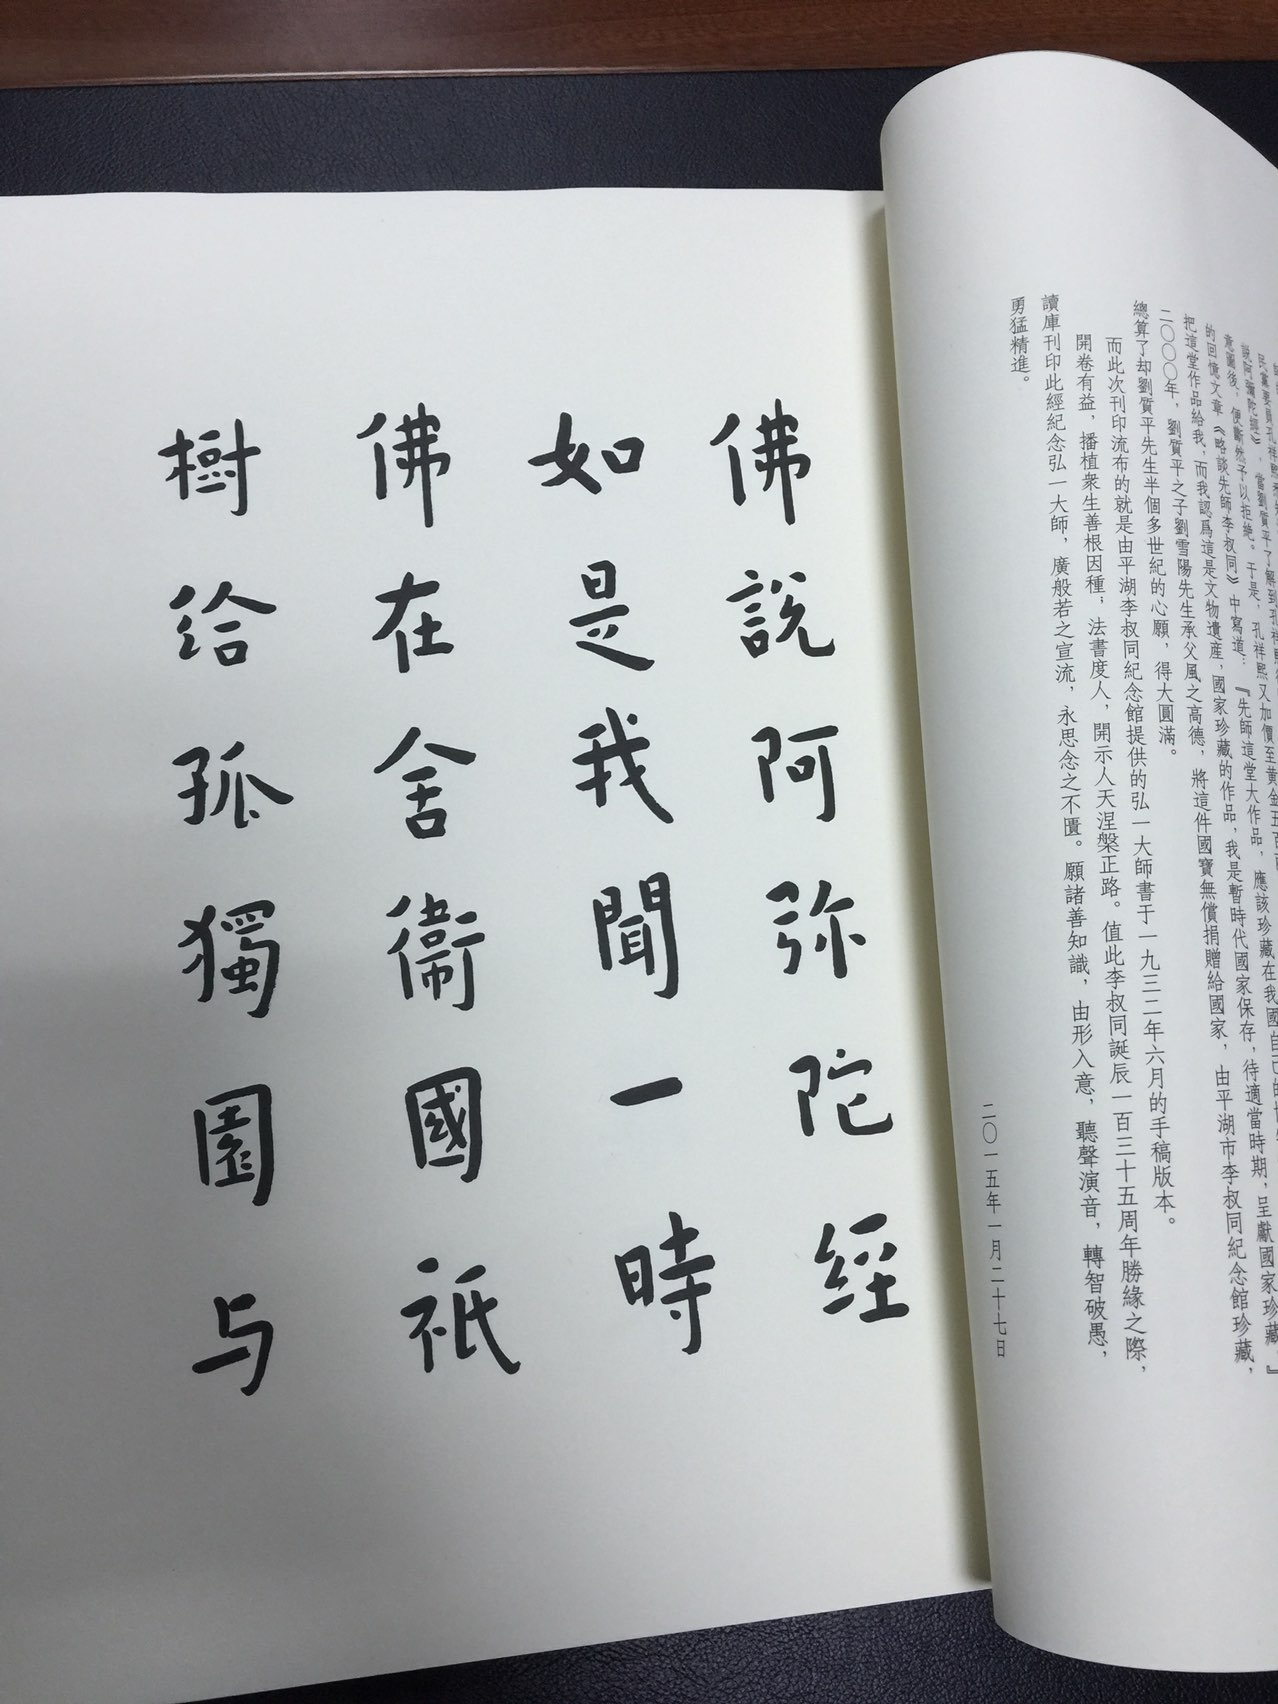 民黨要員孔祥熙
說阿彌陀經》，當劉質平了解到孔祥熙
意圖後，便斷然予以拒絶。于是，孔祥熙又加價至黄金五百
的回憶文章《略談先師李叔同》中寫道：『先師這堂大作品，應該珍藏在我國自己的
把這堂作品給我，而我認爲這是文物遺産，國家珍藏的作品，我是暫時代國家保存，待適當時期，呈獻國家珍藏。』
二〇〇〇年，劉質平之子劉雪陽先生承父風之高德，將這件國寶無償捐贈給國家，由平湖市李叔同紀念館珍藏，
總算了却劉質平先生半個多世紀的心願，得大圓滿。
而此次刊印流布的就是由平湖李叔同紀念館提供的弘一大師書于一九三二年六月的手稿版本。
開卷有益，播植衆生善根因種，法書度人，開示人天涅槃正路。值此李叔同誕辰一百三十五周年勝緣之際，
讀庫刊印此經紀念弘一大師，廣般若之宣流，永思念之不匱。願諸善知識，由形入意，聽聲演音，轉智破愚，
勇猛精進。
二〇一五年一月二十七日
佛說阿弥陀經
如是我聞一時
佛在舍衞國祇
樹给孤獨園与